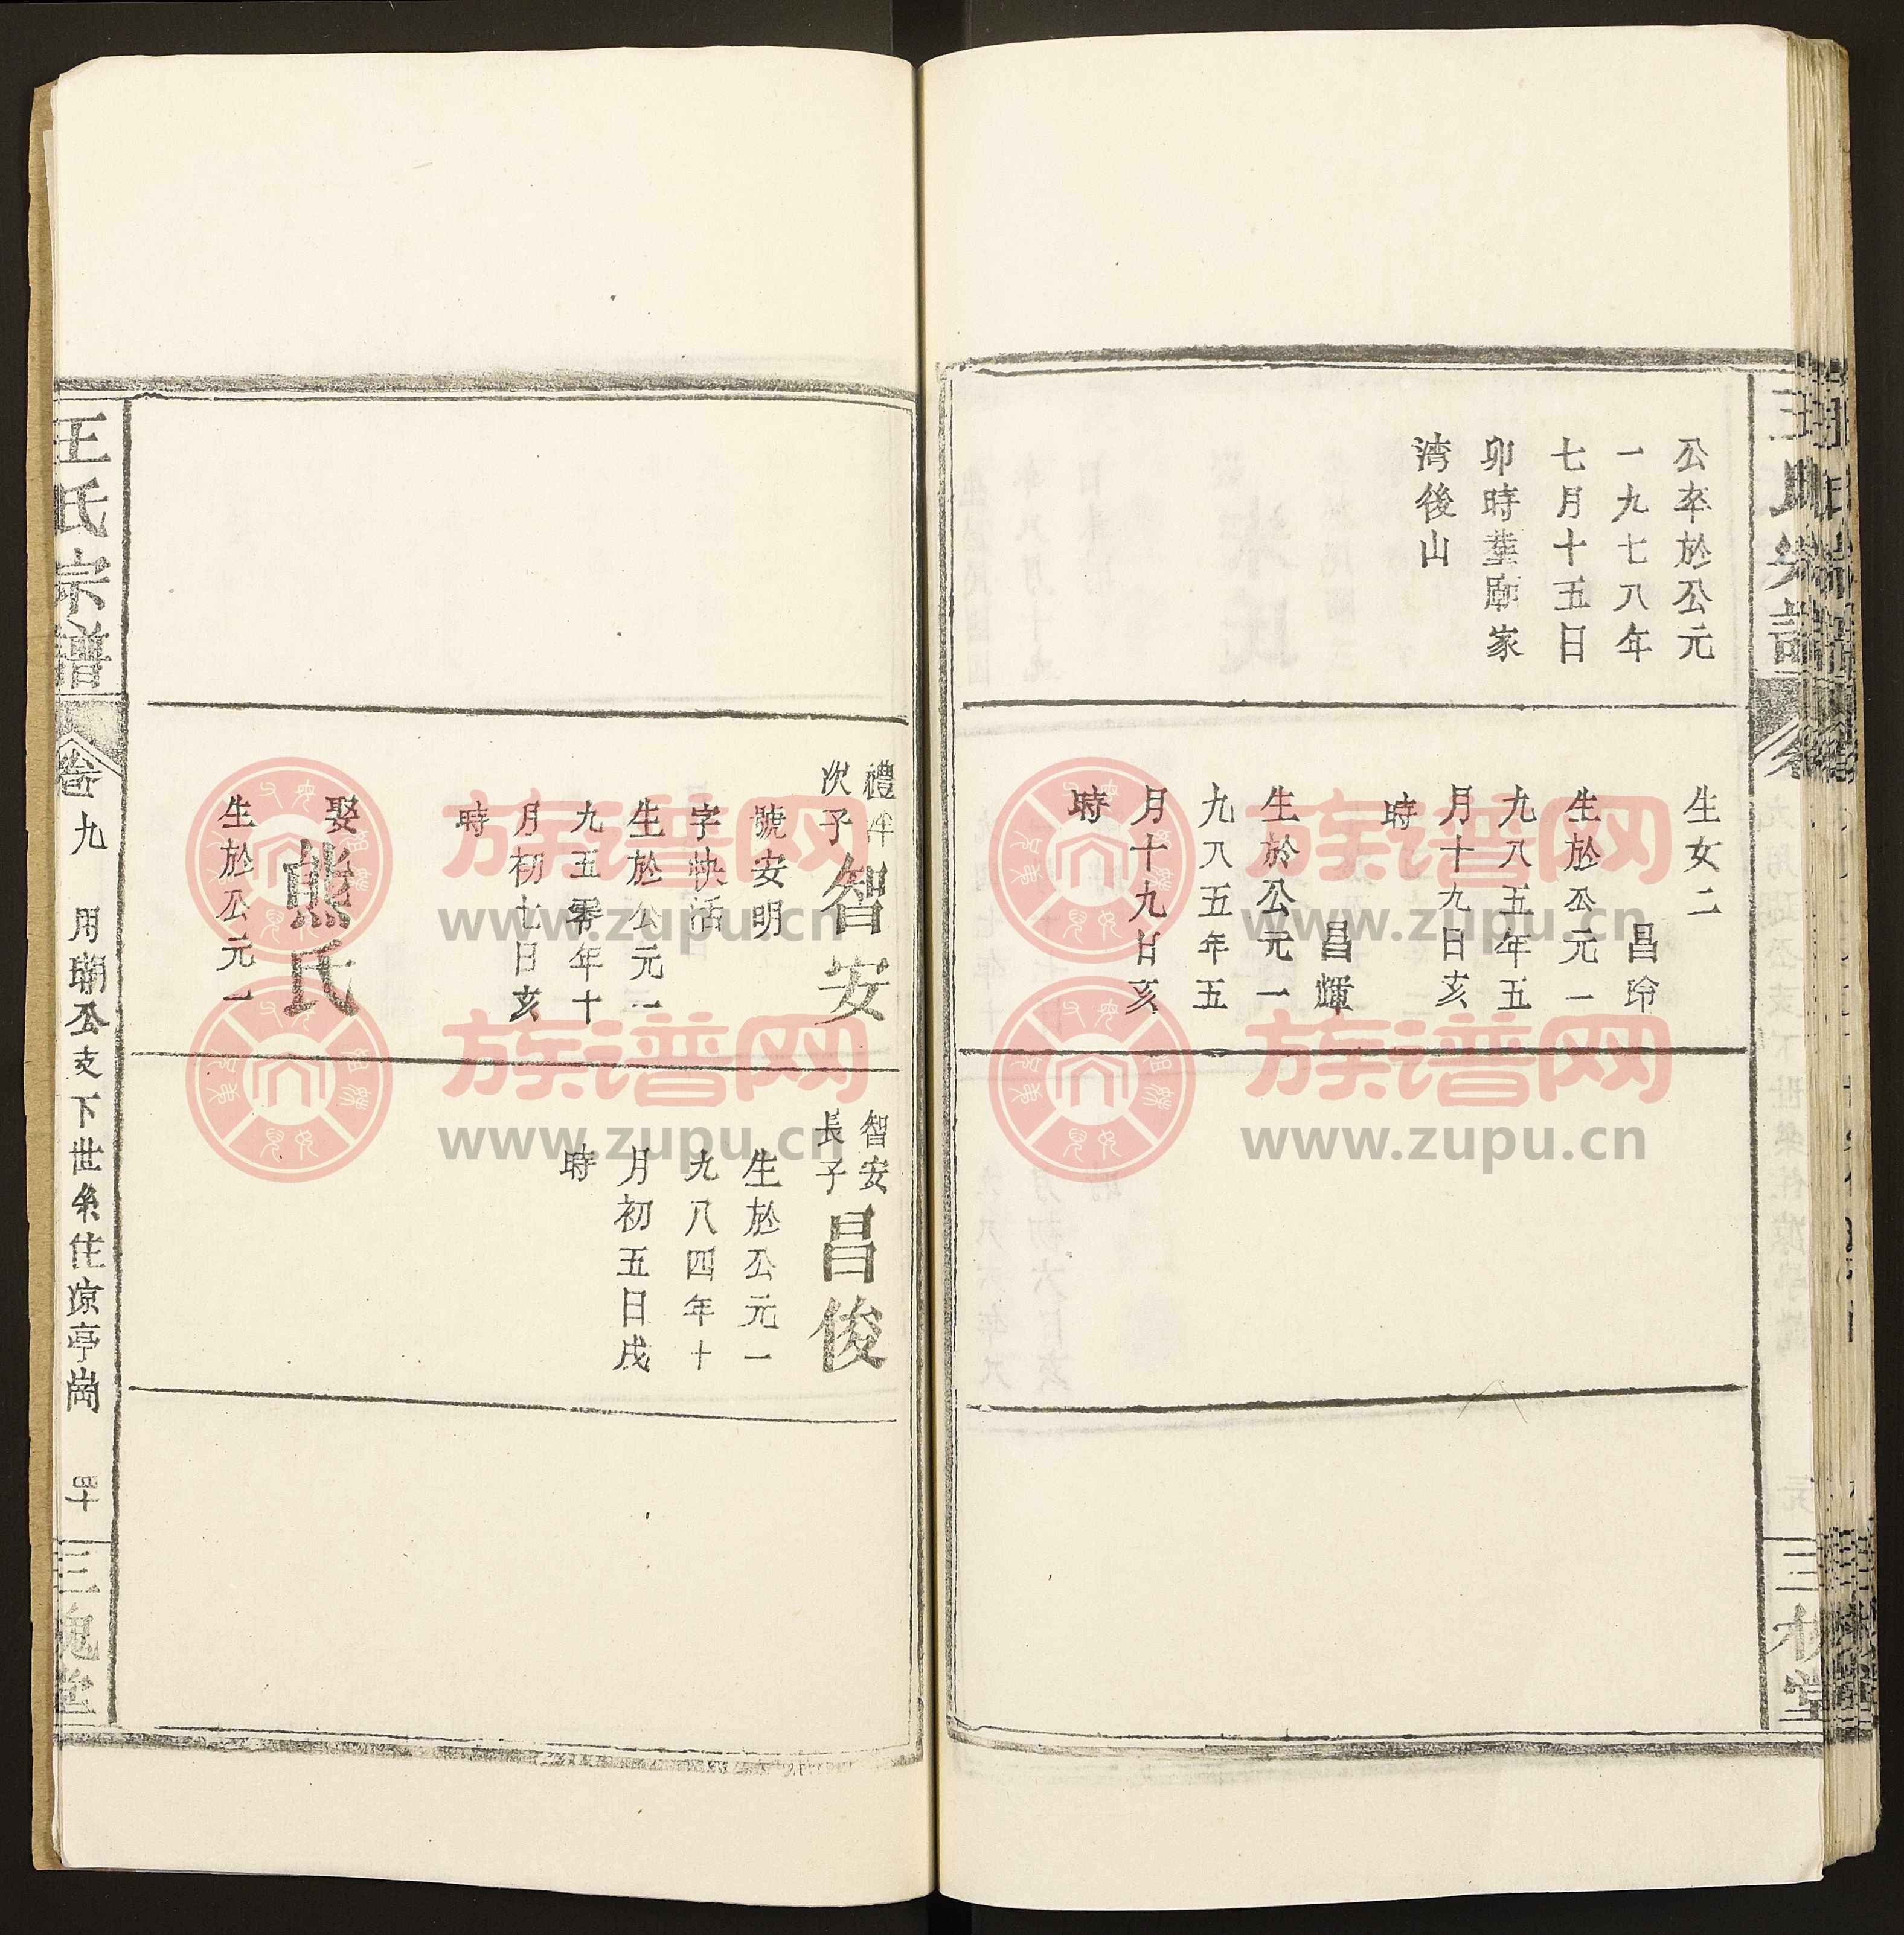 公卒於公元
一九七八年
七月十五日
卯時塟鄢家
湾後山
生女二
昌玲
生於公元一
九八五年五
月十九日亥
時
昌輝
生於公元一
九八五年五
月十九日亥
時
三槐堂
禮
次子
智安
號安明
字快活
生於公元一
九五零年十
月初七日亥
時
娶
熊氏
生於公元一
智安
長子
昌俊
生於公元一
九八四年十
月初五日戌
時
王氏宗譜
卷九
用瑚公支下世系住凉亭崗
四十
三槐堂
族谱网
www.zupu.cn
族谱网
www.zupu.cn
族谱网
www.zupu.cn
族谱网
www.zupu.cn